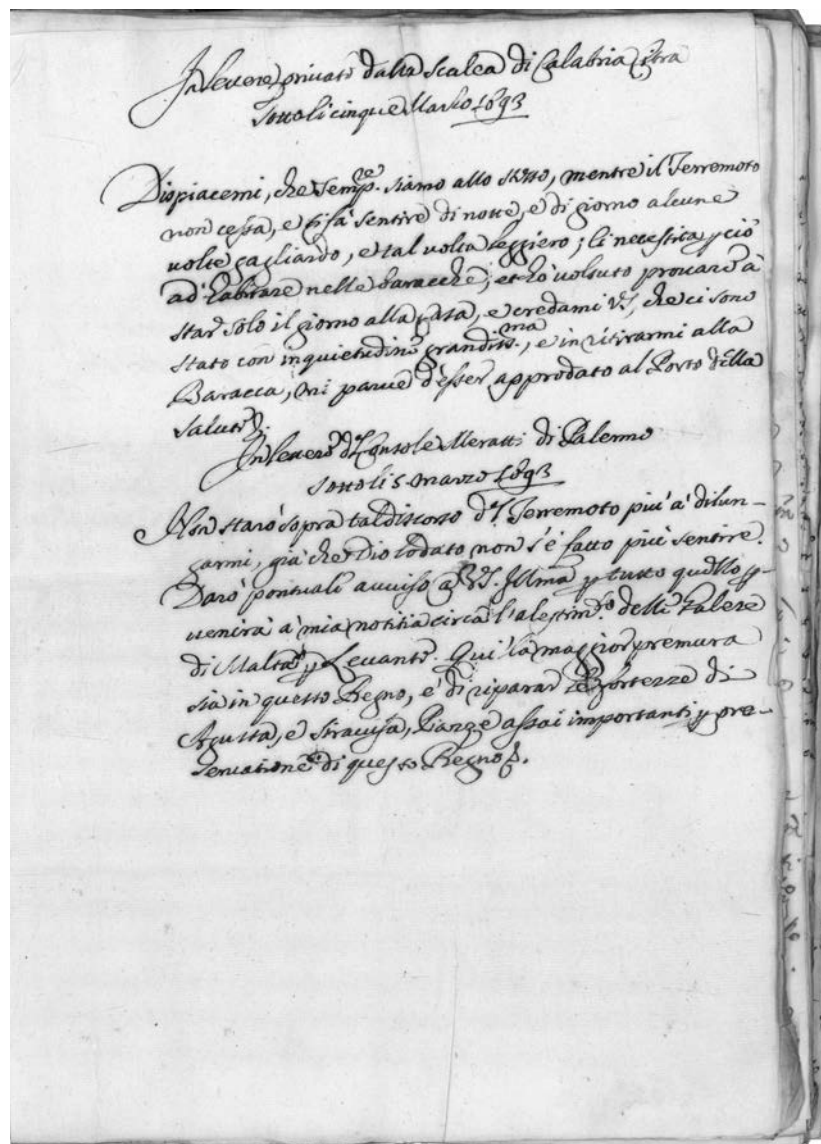 In lettere private dalla Scalea di Calabria Citra
sotto li cinque Marzo 1693
Dispiacemi, che semp.re siamo allo stesso, mentre il Terremoto
non cessa, e si fa sentire di notte, e di giorno alcune
volte gagliardo, e tal volta leggiero; ci necessita p ciò
ad' habitare nelle baracche, et hò voluto provare à
star solo il giorno alla Casa, e credami VS, che ci sono
stato con inquietudini grandiss.ma, e in ritirarmi alla
Baracca, mi parue d'esser approdato al Porto della
salute.
In lettere d'l Console Meratti di Palermo
sotto li 5 marzo 1693
Non starò sopra tal discorso d'l Terremoto piu' à dilun-
garmi, già che Dio lodato non s'è fatto piu' sentire.
Darò pontuali auuiso a VS. Illma p tutto quello p-
uenirà à mia notitia circa l'alestim.to delle Galere
di Malta p Leuante. Qui la maggior premura
sia in questo Regno, è di riparar le fortezze di
Agusta, e Siracusa, Piazze assai importanti p pre-
seruatione di questo Regno.